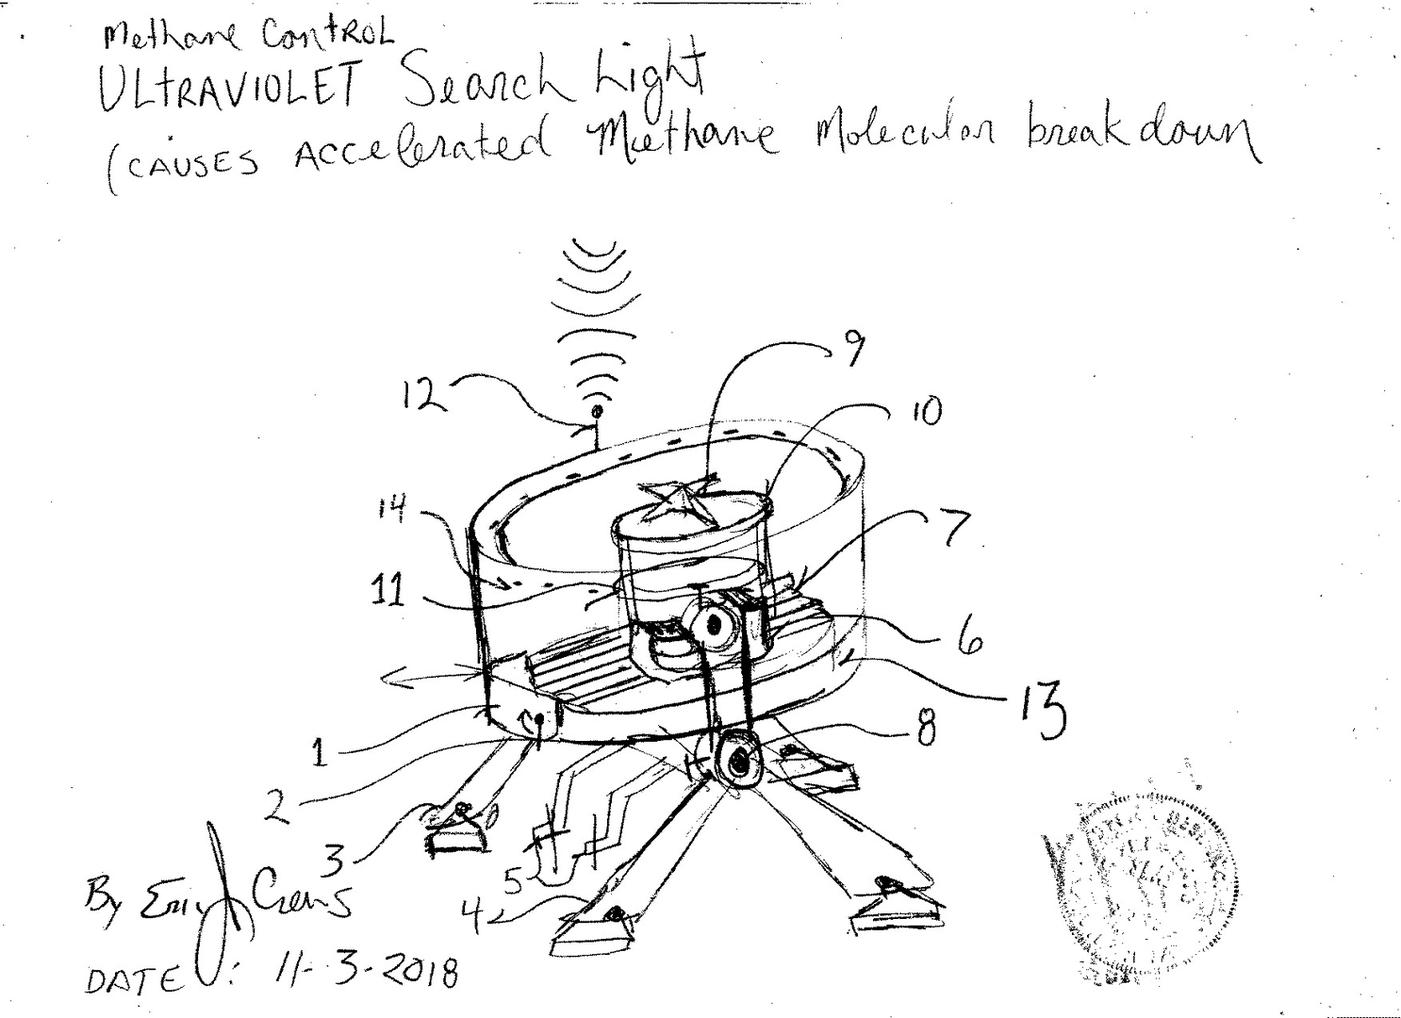 Methane Control
ULTRAVIOLET Search Light
(CAUSES Accelerated Methane Molecular breakdown
9
12
10
14
7
11
6
13
8
1
2
3
5
4
By Eric J Crews
DATE: 11-3-2018